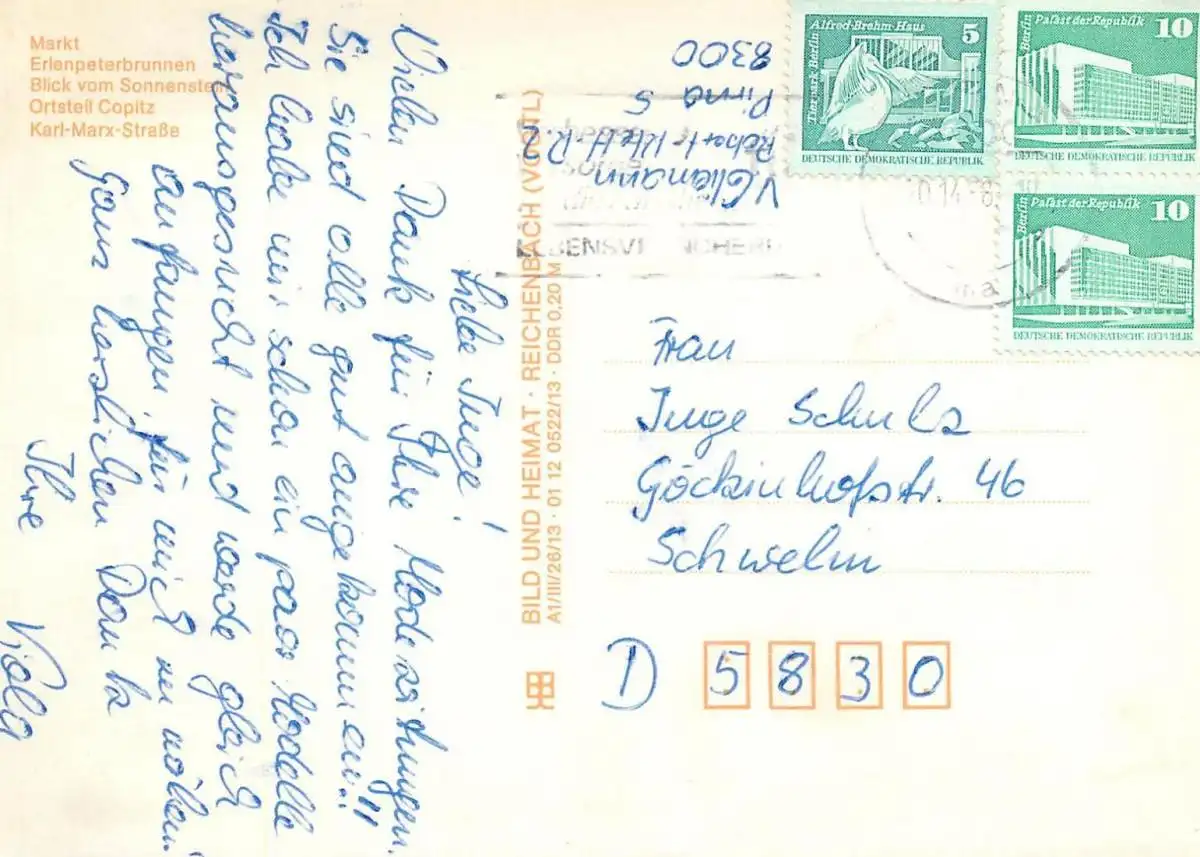 Markt
Erlenpeterbrunnen
Blick vom Sonnenstein
Ortsteil Copitz
Karl-Marx-Straße
Liebe Inge!
Vielen Dank für Ihre Modezeitungen.
Sie sind alle gut angekommen!!
Ich habe mir schon ein paar Modelle
herausgesucht und werde gleich
anfangen für mich zu nähen!
Ganz herzlichen Dank
Ihre
Viola
BILD UND HEIMAT · REICHENBACH (VOGTL)
A1/III/26/13 · 01 12 0522/13 · DDR 0,20 M
Pirna 5
8300
Alfred-Brehm-Haus
5
Tierpark Berlin
DEUTSCHE DEMOKRATISCHE REPUBLIK
Palast der Republik
10
Berlin
DEUTSCHE DEMOKRATISCHE REPUBLIK
Palast der Republik
10
Berlin
DEUTSCHE DEMOKRATISCHE REPUBLIK
Frau
Inge Schulz
Göckinhofstr. 46
Schwelm
D 5830